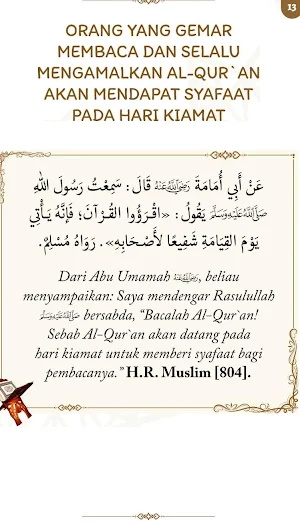 13
ORANG YANG GEMAR
MEMBACA DAN SELALU
MENGAMALKAN AL-QUR`AN
AKAN MENDAPAT SYAFAAT
PADA HARI KIAMAT
عَنْ أَبِي أُمَامَةَ رَضِيَ اللَّهُ عَنْهُ قَالَ: سَمِعْتُ رَسُولَ اللهِ
صَلَّى اللَّهُ عَلَيْهِ وَسَلَّمَ يَقُولُ: «اقْرَؤُوا القُرْآنَ؛ فَإِنَّهُ يَأْتِي
يَوْمَ القِيَامَةِ شَفِيعًا لأَصْحَابِهِ». رَوَاهُ مُسْلِمٌ.
Dari Abu Umamah رَضِيَ اللَّهُ عَنْهُ, beliau
menyampaikan: Saya mendengar Rasulullah
صَلَّى اللَّهُ عَلَيْهِ وَسَلَّمَ bersabda, “Bacalah Al-Qur`an!
Sebab Al-Qur`an akan datang pada
hari kiamat untuk memberi syafaat bagi
pembacanya.” H.R. Muslim [804].